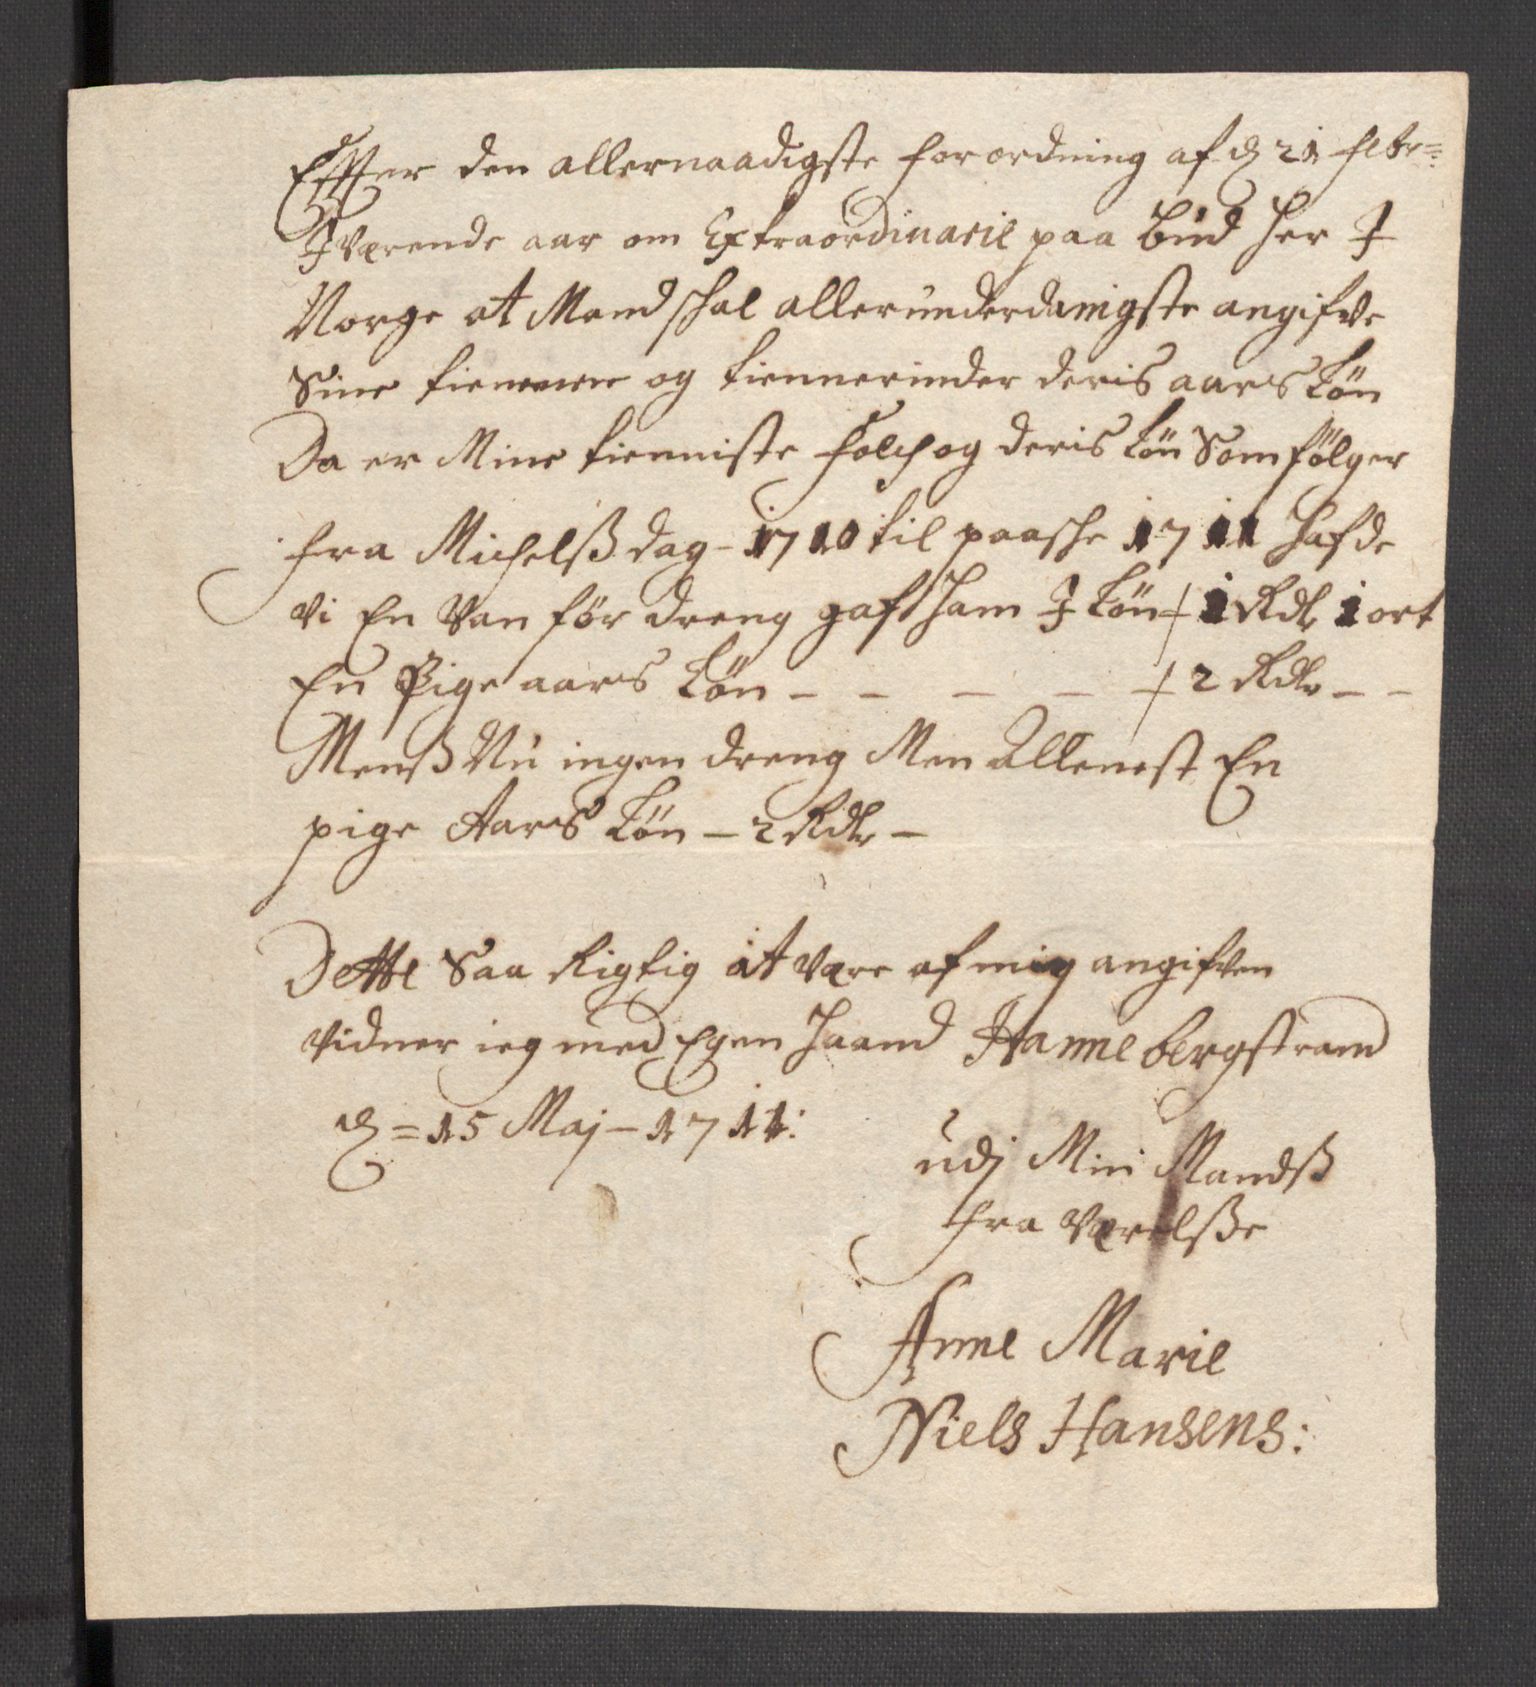 Efter den allernaadigste forordning af d 21 febr=
Iværende aar om Extraordinarie paa büd her I
Norge at Mand schal alleründerdanigste angifve
Sine tiennere og tiennerinder deris aars Lön
Da er Mine tienniste folch og deris Lön Som fölger
fra Michelß dag - 1710 til paasche 1711 hafde
vi En Van för dreng gaf ham I Lön / 1 Rdlr 1 ort
En Pige aars Lön - - - - - / 2 Rdlr - -
Menß Nü ingen dreng Men Allenest En
pige Aars Lön - 2 Rdlr -
Dette Saa Rigtig at være af mig angifven
Vidner ieg med Egen Haand Hannebergstrand
d = 15 Maj - 1711:
üdj Min Mandß
fra Værelße
Anne Marie
Niels Hansens: